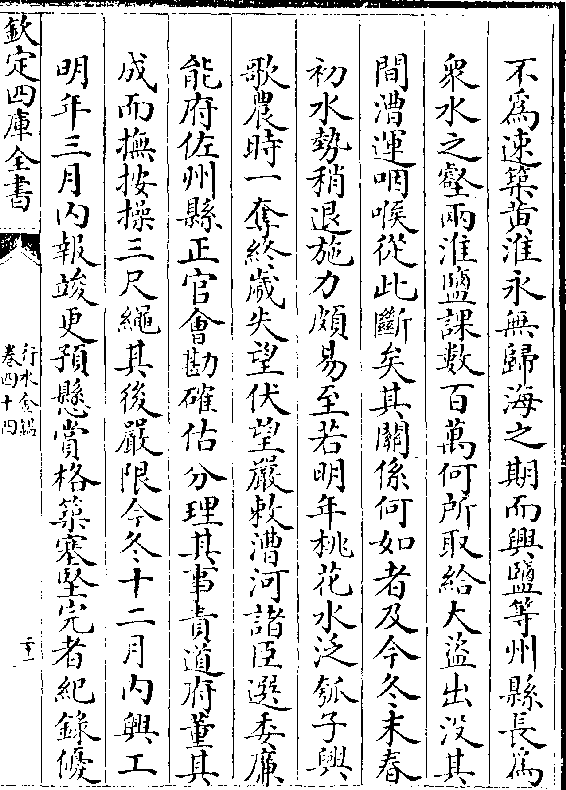 不爲速築黄淮永無歸海之期而興鹽等州縣長爲
衆水之壑兩淮鹽課數百萬何所取給大盗出没其
間漕運咽喉從此斷矣其關係何如者及今冬末春
初水勢稍退施力頗易至若明年桃花水泛瓠子興
歌農時一奪終歲失望伏望嚴敕漕河諸臣選委廉
能府佐州縣正官會勘確估分理其事責道府董其
成而撫按操三尺繩其後嚴限今冬十二月内興工
明年三月内報竣更預懸賞格築塞堅完者紀錄優
欽定四庫全書
行水金鑑
卷四十四
二十一